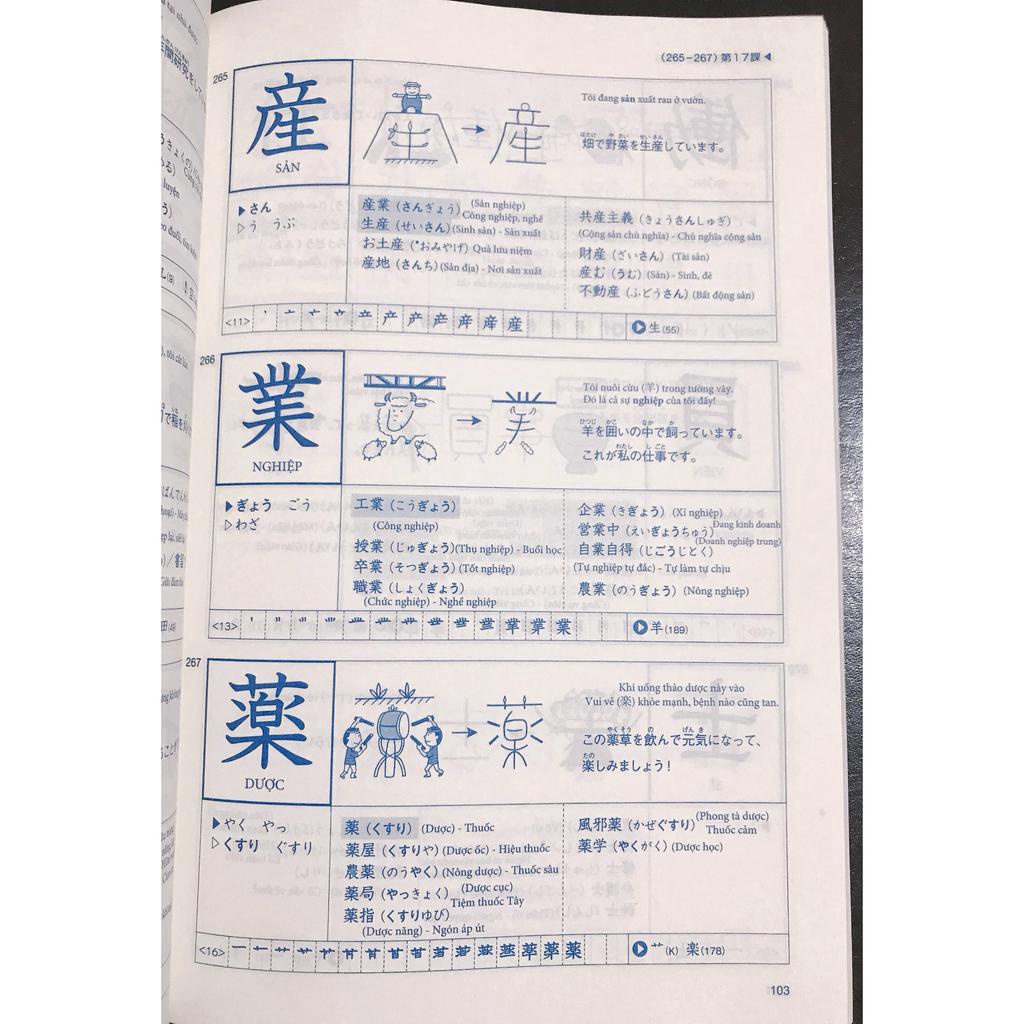 (265–267) 第17課◀
265
産
SẢN
Tôi đang sản xuất rau ở vườn.
畑で野菜を生産しています。
▶さん
▷う うぶ
産業 (さんぎょう) (Sản nghiệp) Công nghiệp, nghề
生産 (せいさん) (Sinh sản) - Sản xuất
お土産 (*おみやげ) Quà lưu niệm
産地 (さんち) (Sản địa) - Nơi sản xuất
共産主義 (きょうさんしゅぎ)
(Cộng sản chủ nghĩa) - Chủ nghĩa cộng sản
財産 (ざいさん) (Tài sản)
産む (うむ) (Sản) - Sinh, đẻ
不動産 (ふどうさん) (Bất động sản)
<11>
生 (55)
266
業
NGHIỆP
Tôi nuôi cừu (羊) trong tường vây.
Đó là cả sự nghiệp của tôi đấy!
羊を囲いの中で飼っています。
これが私の仕事です。
▶ぎょう ごう
▷わざ
工業 (こうぎょう)
(Công nghiệp)
授業 (じゅぎょう) (Thụ nghiệp) - Buổi học
卒業 (そつぎょう) (Tốt nghiệp)
職業 (しょくぎょう)
(Chức nghiệp) - Nghề nghiệp
企業 (きぎょう) (Xí nghiệp)
営業中 (えいぎょうちゅう) Đang kinh doanh
(Doanh nghiệp trung)
自業自得 (じごうじとく)
(Tự nghiệp tự đắc) - Tự làm tự chịu
農業 (のうぎょう) (Nông nghiệp)
<13>
羊 (189)
267
薬
DƯỢC
Khi uống thảo dược này vào
Vui vẻ (楽) khỏe mạnh, bệnh nào cũng tan.
この薬草を飲んで元気になって、
楽しみましょう！
▶やく やっ
▷くすり ぐすり
薬 (くすり) (Dược) - Thuốc
薬屋 (くすりや) (Dược ốc) - Hiệu thuốc
農薬 (のうやく) (Nông dược) - Thuốc sâu
薬局 (やっきょく) (Dược cục) Tiệm thuốc Tây
薬指 (くすりゆび)
(Dược năng) - Ngón áp út
風邪薬 (かぜぐすり) (Phong tà dược) Thuốc cảm
薬学 (やくがく) (Dược học)
<16>
艹 (K) 楽 (178)
103